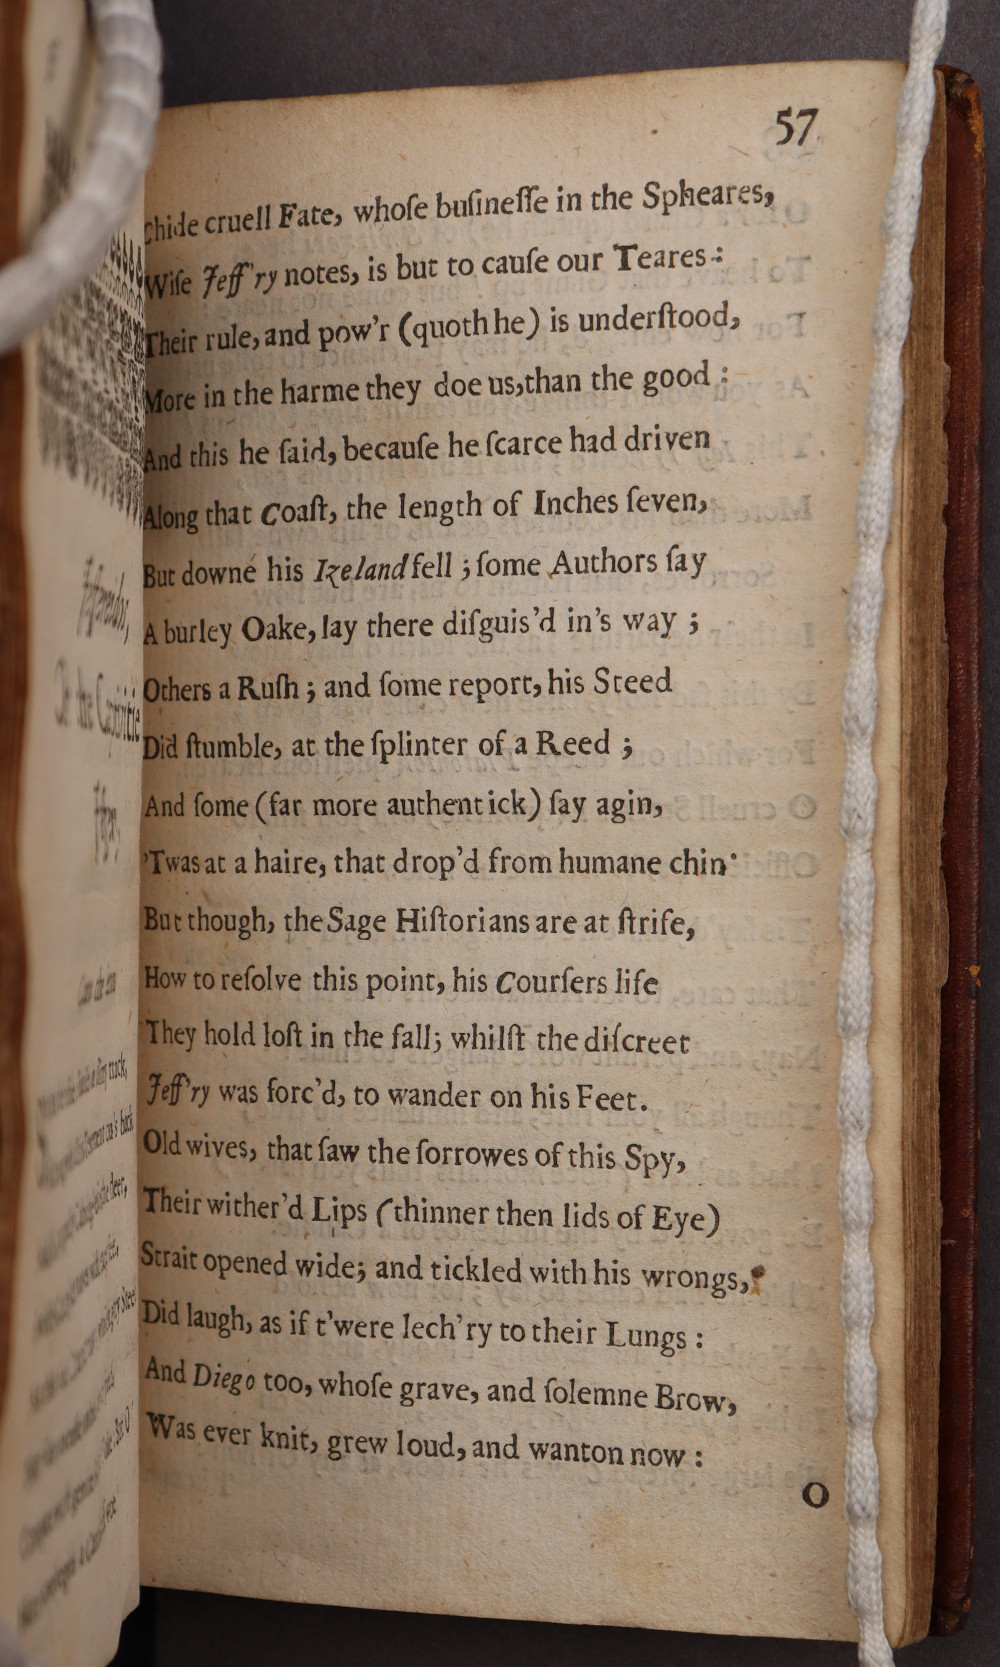 57
Chide cruell Fate, whoſe buſineſſe in the Spheares,
Wiſe Jeff'ry notes, is but to cauſe our Teares:
Their rule, and pow'r (quoth he) is underſtood,
More in the harme they doe us, than the good:
And this he ſaid, becauſe he ſcarce had driven
Along that Coaſt, the length of Inches ſeven,
But downe his Izeland fell; ſome Authors ſay
A burley Oake, lay there diſguis'd in's way;
Others a Ruſh; and ſome report, his Steed
Did ſtumble, at the ſplinter of a Reed;
And ſome (far more authentick) ſay agin,
'Twas at a haire, that drop'd from humane chin·
But though, the Sage Hiſtorians are at ſtrife,
How to reſolve this point, his Courſers life
They hold loſt in the fall; whilſt the diſcreet
Jeff'ry was forc'd, to wander on his Feet.
Old wives, that ſaw the ſorrowes of this Spy,
Their wither'd Lips (thinner then lids of Eye)
Strait opened wide; and tickled with his wrongs,
Did laugh, as if t'were lech'ry to their Lungs:
And Diego too, whoſe grave, and ſolemne Brow,
Was ever knit, grew loud, and wanton now:
O